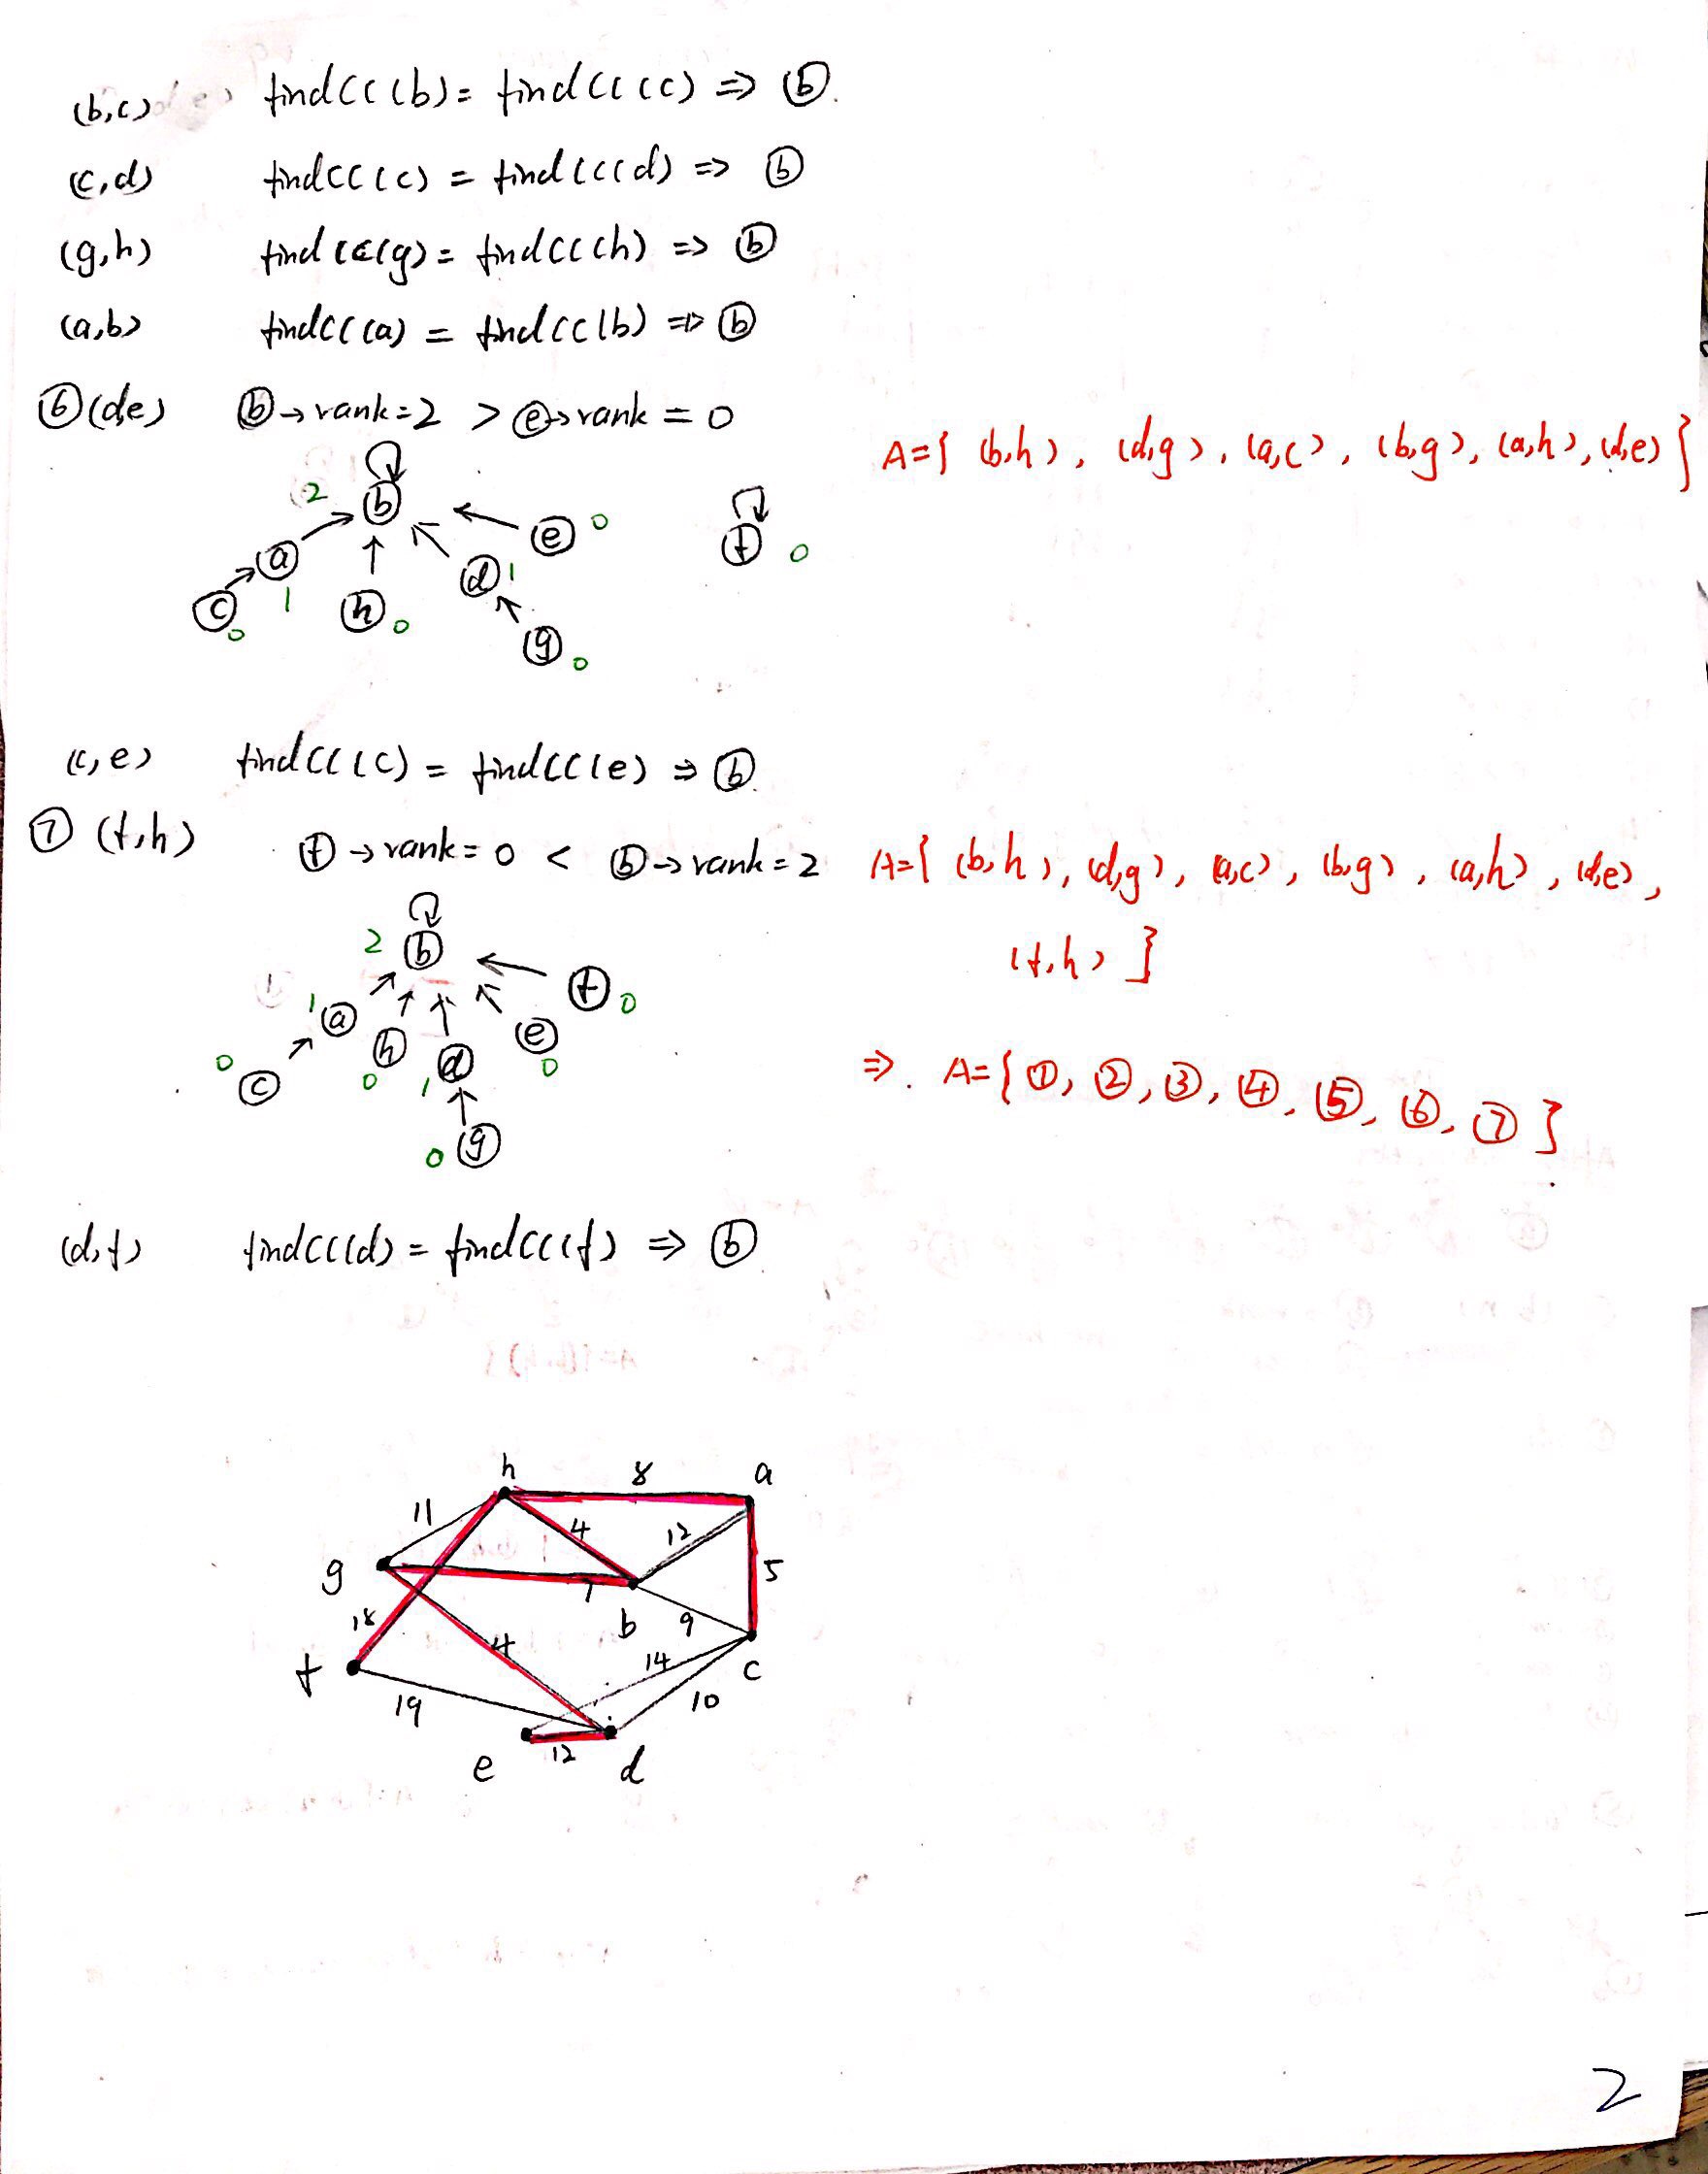 (b,c) findCC(b) = findCC(c) => ⓑ.
(c,d) findCC(c) = findCC(d) => ⓑ
(g,h) findCC(g) = findCC(h) => ⓑ
(a,b) findCC(a) = findCC(b) => ⓑ
⑥(d,e) ⓑ→rank=2 > ⓔ→rank = 0
A={ (b,h), (d,g), (a,c), (b,g), (a,h), (d,e) }
2 ⓑ
ⓐ 1 ⓔ 0 ⓕ 0
ⓒ 0 ⓗ 0 ⓓ 1
ⓖ 0
(c,e) findCC(c) = findCC(e) => ⓑ
⑦ (f,h) ⓕ→rank=0 < ⓑ→rank=2
A={ (b,h), (d,g), (a,c), (b,g), (a,h), (d,e),
(f,h) }
2 ⓑ
1 ⓐ ⓗ 0 ⓔ 0 ⓕ 0
0 ⓒ 1 ⓓ
0 ⓖ
=>. A={ ①, ②, ③, ④, ⑤, ⑥, ⑦ }
(d,f) findCC(d) = findCC(f) => ⓑ
h 8 a
11 4 12
g 7 5
18 b 9
4 14 c
f 19 10
e 12 d
2